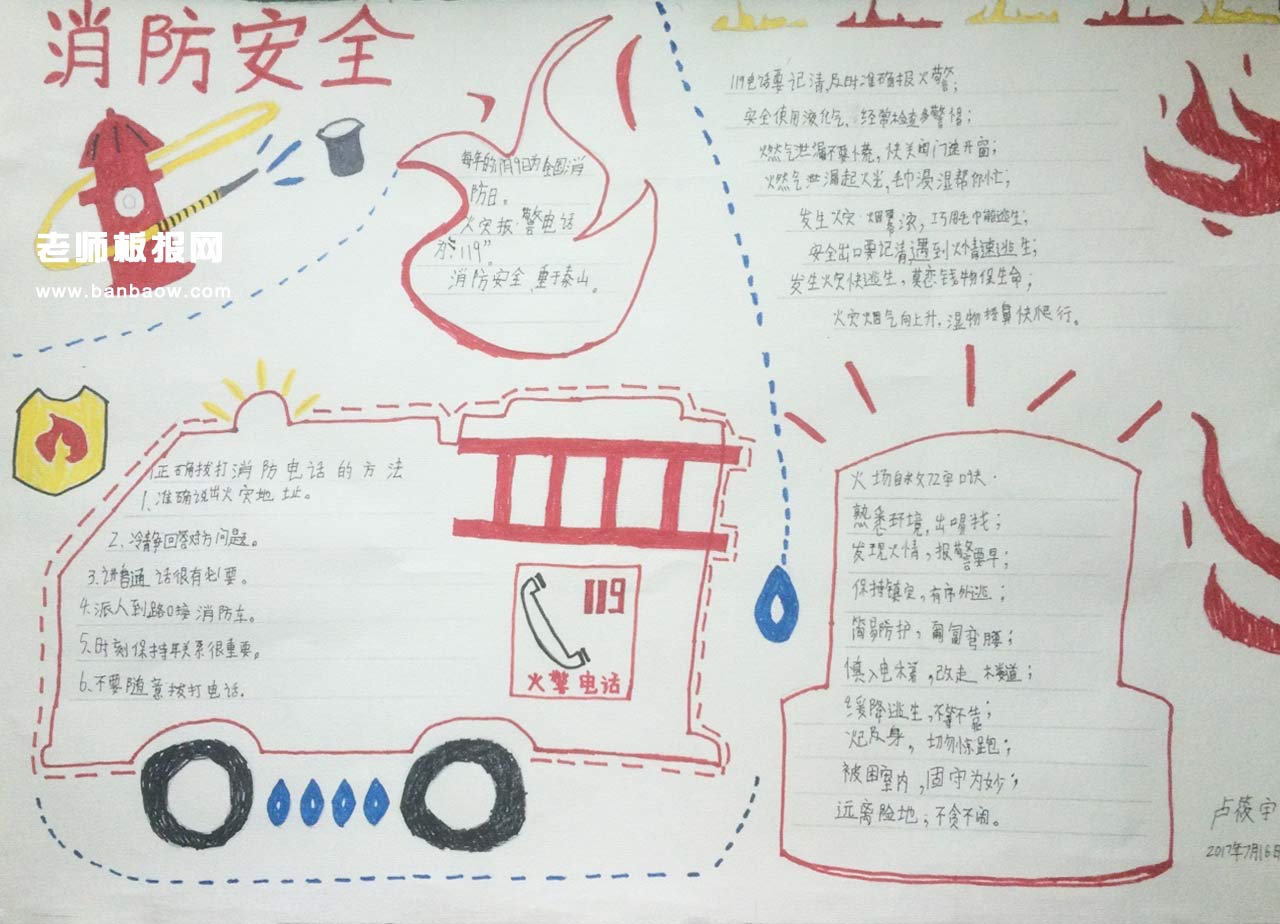 消防安全
老师板报网
www.banbaow.com
每年的11月9日为全国消
防日。
火灾报警电话
为“119”。
消防安全,重于泰山。
119电话要记清,及时准确报火警;
安全使用液化气,经常检查多警惕;
燃气泄漏不要慌,快关阀门速开窗;
燃气泄漏起火光,毛巾浸湿帮你忙;
发生火灾烟雾浓,巧用毛巾能逃生;
安全出口要记清,遇到火情速逃生;
发生火灾快逃生,莫恋钱物保生命;
火灾烟气向上升,湿物捂鼻快爬行。
正确拨打消防电话的方法
1、准确说出火灾地址。
2、冷静回答对方问题。
3、讲普通话很有必要。
4、派人到路口接消防车。
5、时刻保持联系很重要。
6、不要随意拨打电话.
119
火警电话
火场自救72字口诀:
熟悉环境,出口易找;
发现火情,报警要早;
保持镇定,有序外逃;
简易防护,匍匐弯腰;
慎入电梯,改走楼道;
缓降逃生,不等不靠;
火已及身,切勿惊跑;
被困室内,固守为妙;
远离险地,不贪不闹。
卢筱宇
2017年7月16日